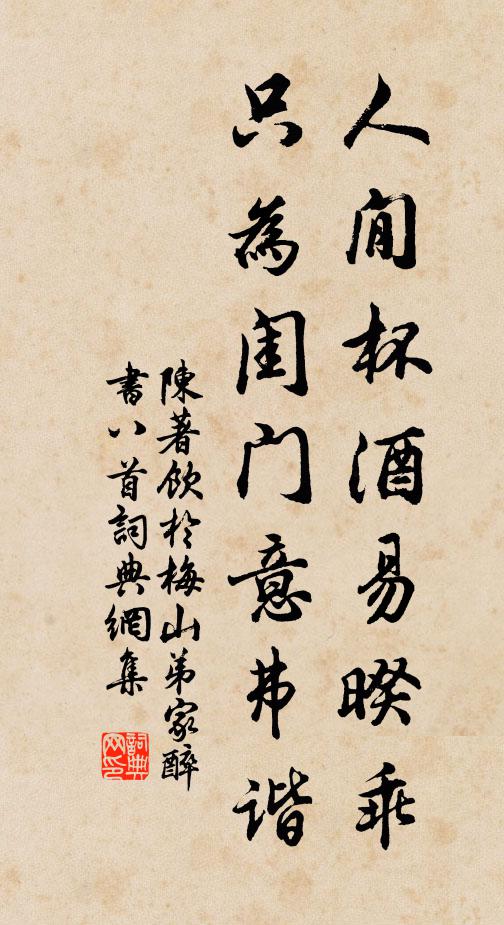 人閒杯酒易暌乖
只為閨门意弗谐
陳著飲於梅山弟家醉
書八首詞典網集
詞典
网印